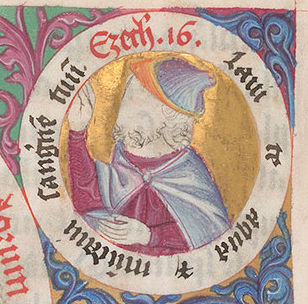 Ezech. 16.
Laui te aqua ⁊ mūdaui sanguinē tuū.